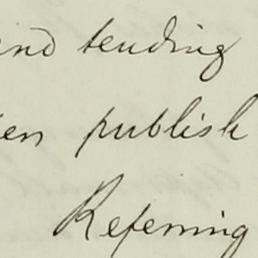 and tending
en publish
Referring